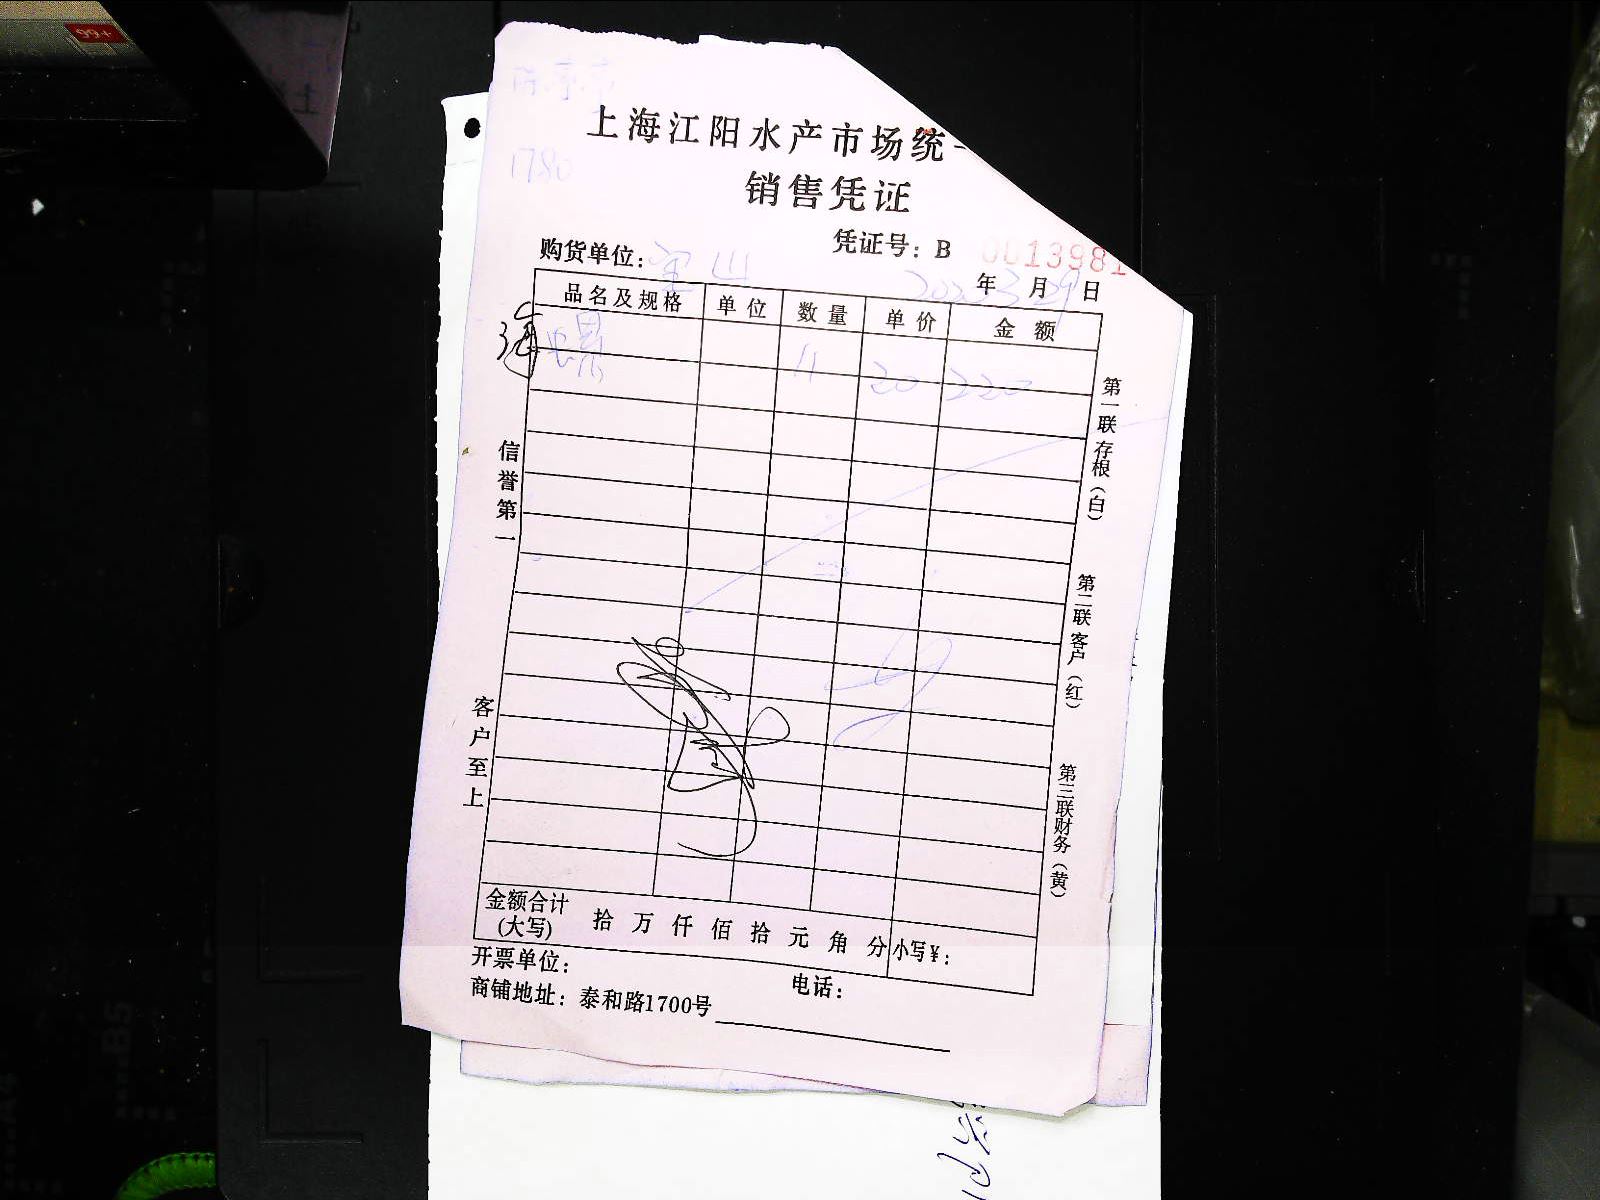 99+
1780
上海江阳水产市场统一
销售凭证
凭证号: B 0013981
购货单位: 宝山
年 月 日
品名及规格 单位 数量 单价 金额
海螺 11 20 220
信誉第一
客户至上
第一联存根(白)
第二联客户(红)
第三联财务(黄)
金额合计 拾 万 仟 佰 拾 元 角 分 小写¥:
(大写)
开票单位: 电话:
商铺地址: 泰和路1700号